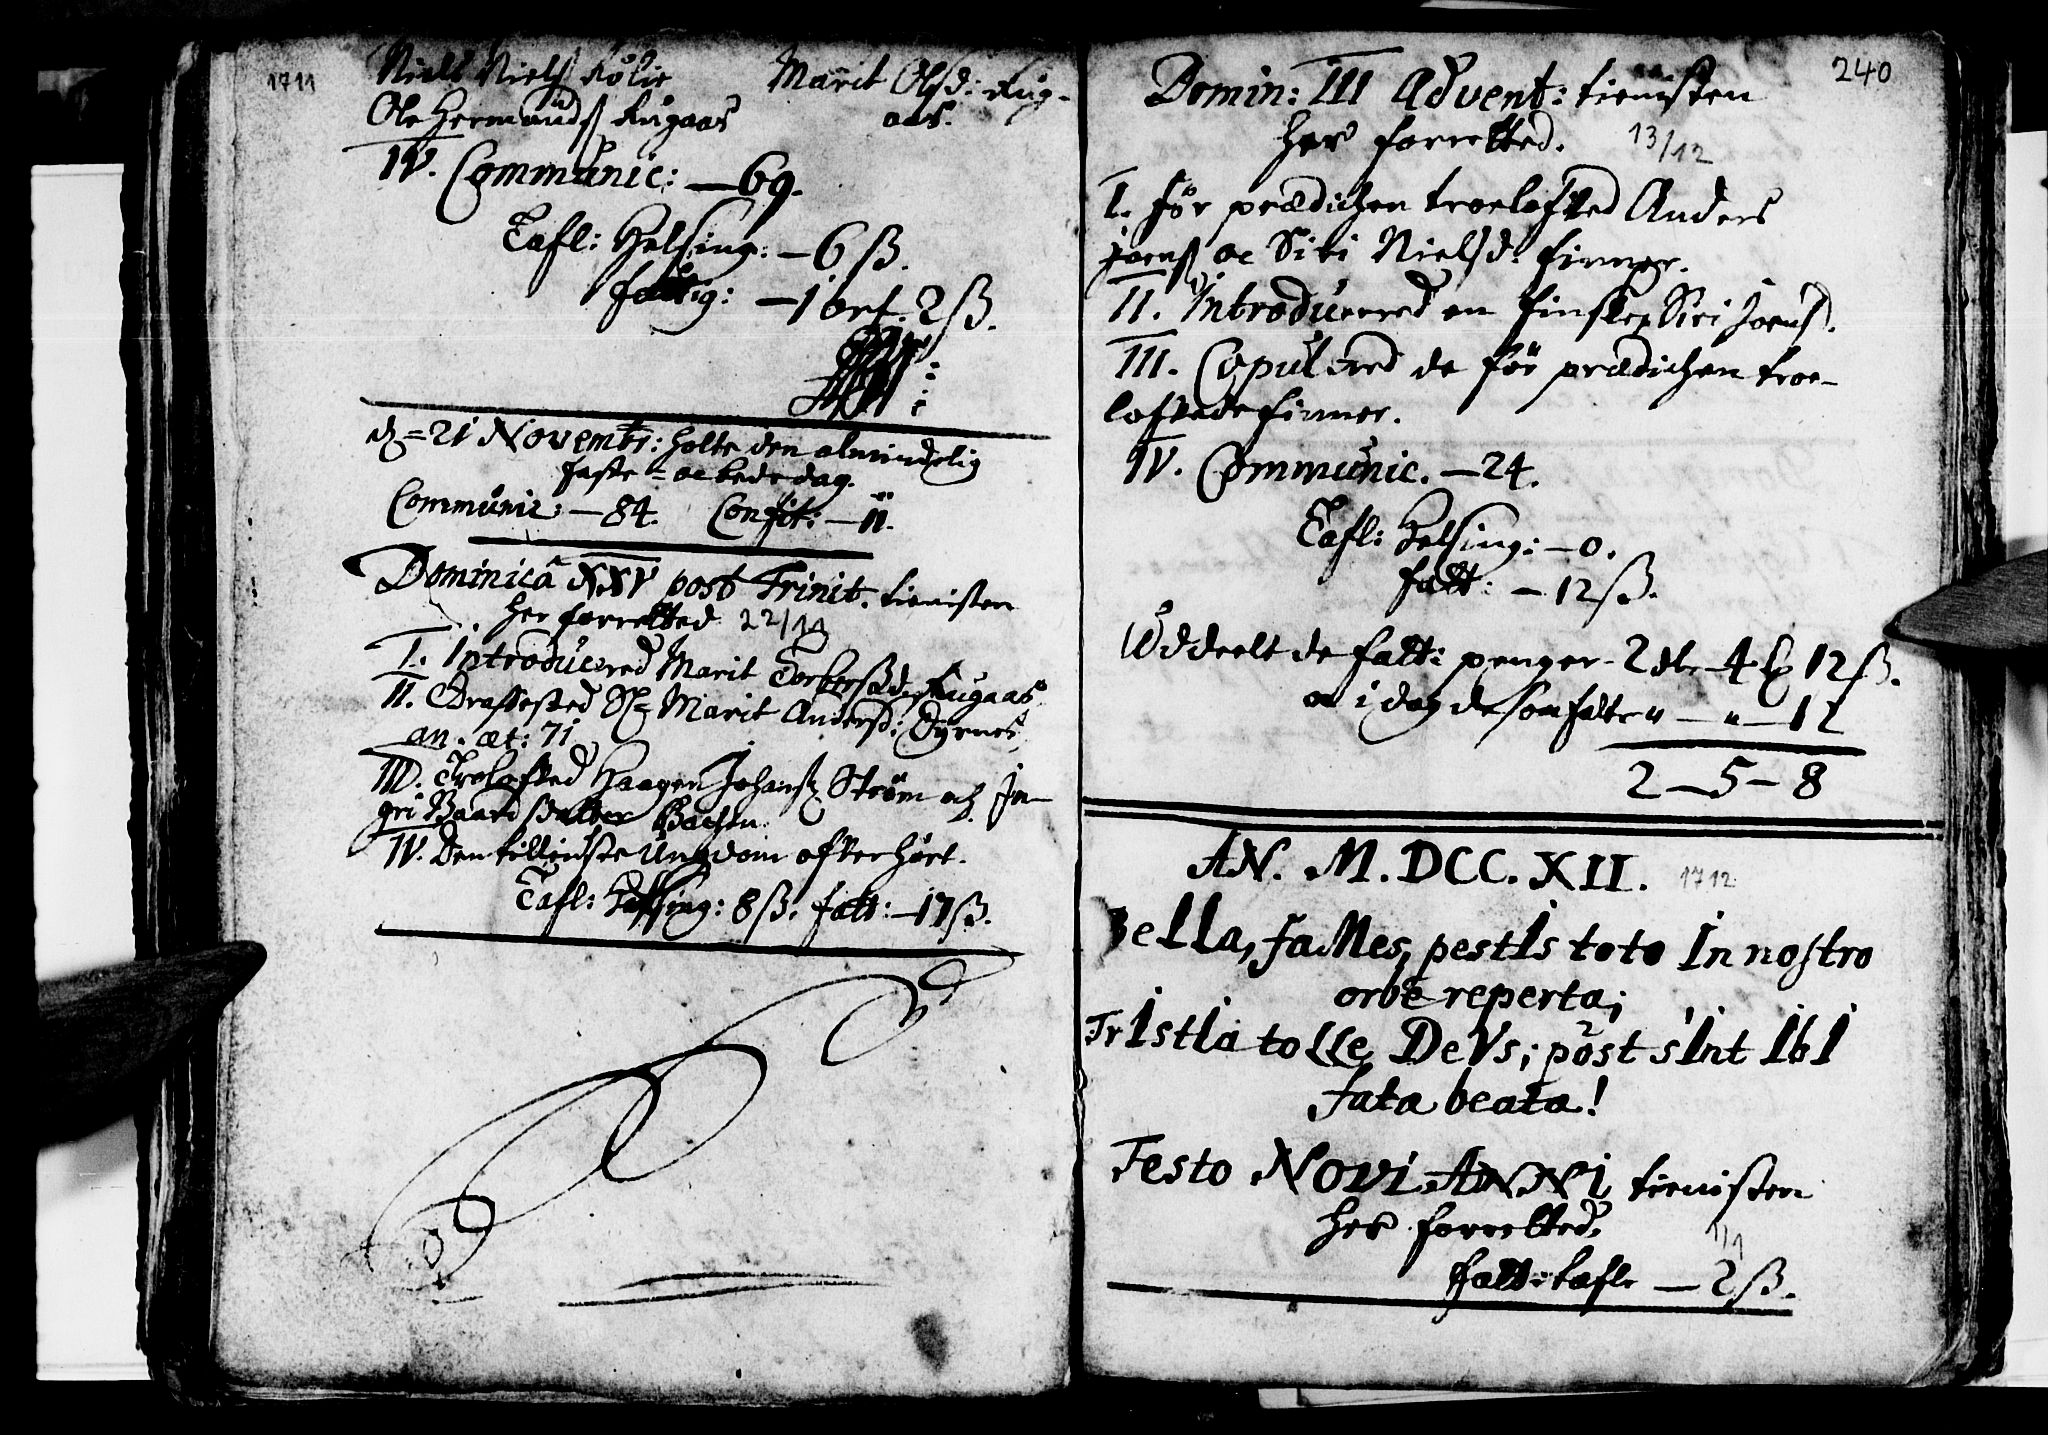 1711
Niels Nielsß Kölie Marit Olsd: Kug-
Ole Hermundsß Kugaas aas.
IV. Communic: — 69.
Tafl: Helsing: — 6 ß.
fattig: — 1 ort. 2 ß.
d. = 21 Novembr: holte den almindelig
faste = oc bededag.
Communic: — 84. Confit: — 11.
Dominicâ XXV post Trinit. tienisten
her forretted 22/11
I. Introducered Marit Kugaas
II. Graffested Marit Andersd: Dyrnes
an. æt: 71
III. Trolofted Haagen Johansß Ström och In-
gri Baardsßdatter Bachen.
IV. Den tilliidste Ungdom offterhört.
Tafl: Helsing: 8 ß. fatt: — 17 ß.
240
Domin: III Advent: tienisten
her forretted. 13/12
I. för prædichen troelofted Anders
Joensß oc Siri Nielsd: finner.
II. Introducered en finsk Siri Joensd.
III. Copulered de för prædichen troe-
loftede finner.
IV. Communic. — 24.
Tafl: Helsing: — 0.
fatt: — 12 ß.
Uddeelt de fatt: penger - 2 dlr - 4 12 ß.
oc i dag de som falt „ — „ — 12
2 — 5 — 8
AN. M. DCC. XII. 1712
BeLLa, faMes, pestIs toto In nostro
orbe reperta;
TrIstIa toLLe DeVs; post sInt IbI
fata beata!
Festo NOVI ANNI tienisten
her forretted. 1/1
fatt: tafle — 2 ß.